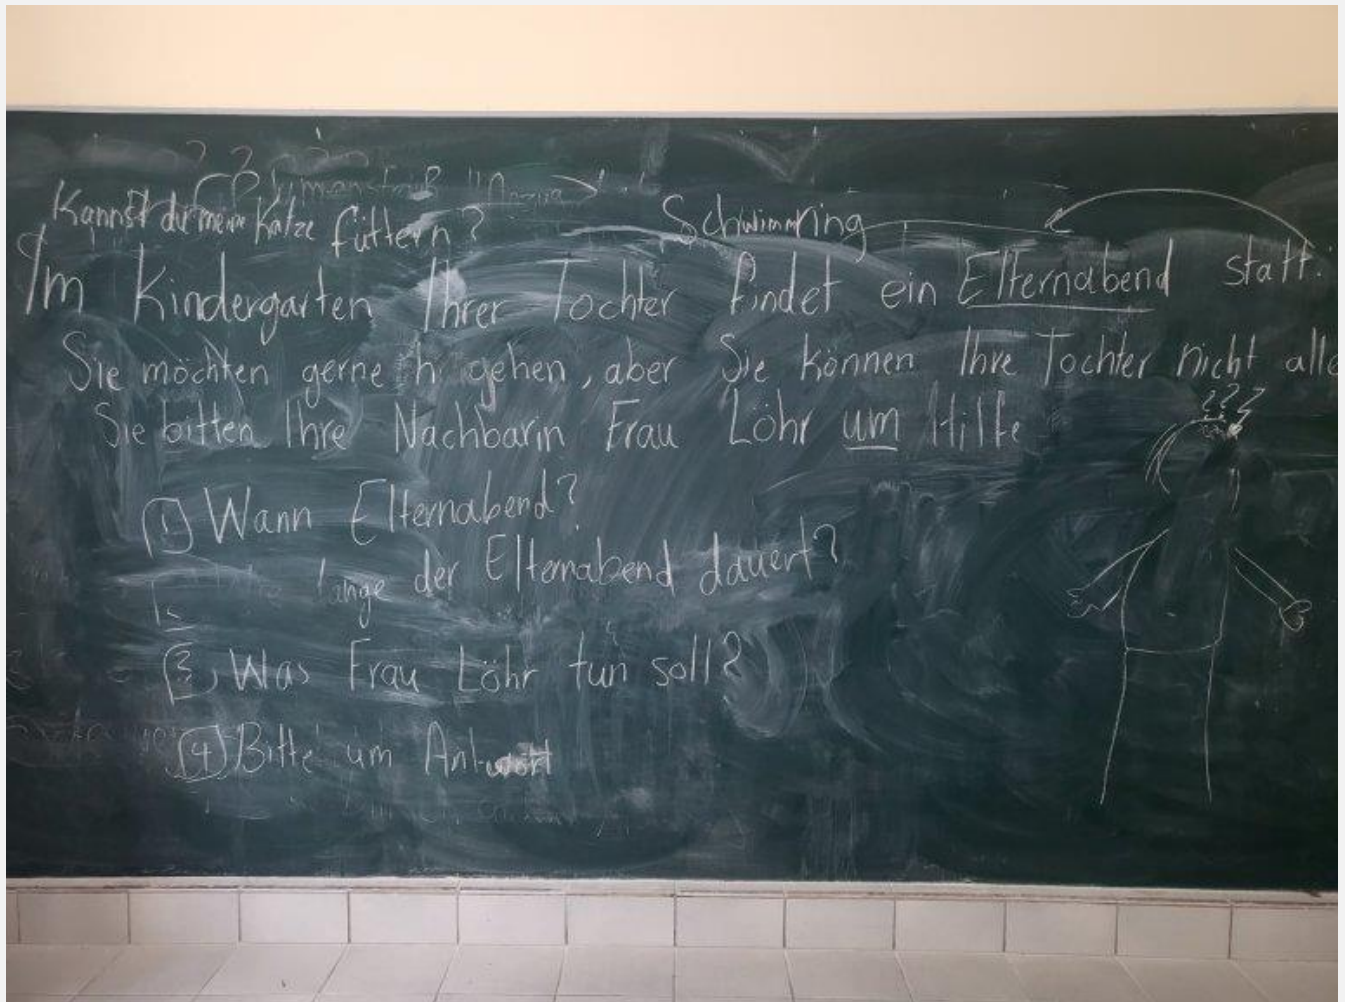 Kannst du meine Katze füttern?
Schwimmring
Im Kindergarten Ihrer Tochter findet ein Elternabend statt.
Sie möchten gerne gehen, aber Sie können Ihre Tochter nicht alle
Sie bitten Ihre Nachbarin Frau Löhr um Hilfe
1 Wann Elternabend?
lange der Elternabend dauert?
3 Was Frau Löhr tun soll?
4 Bitte um Antwort
???